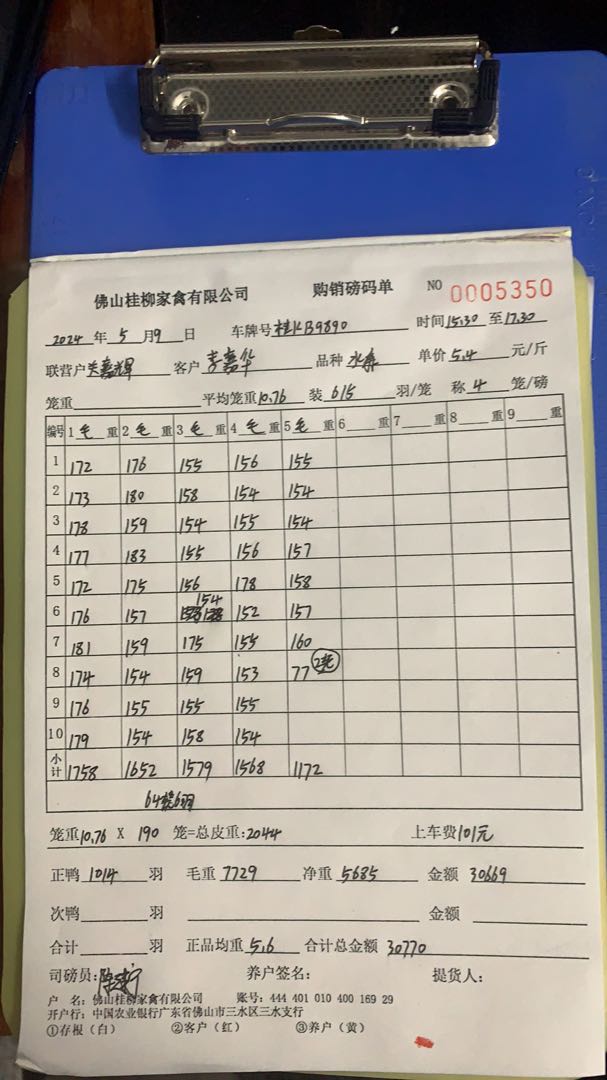 佛山桂柳家禽有限公司 购销磅码单 NO 0005350
2024 年 5 月 9 日 车牌号 桂KB9890 时间 15.30 至 17.30
联营户 嘉辉 客户 李嘉华 品种 水 单价 5.4 元/斤
笼重 平均笼重 10.76 装 6 15 羽/笼 称 4 笼/磅
编号 1 毛 重 2 毛 重 3 毛 重 4 毛 重 5 毛 重 6 重 7 重 8 重 9 重
1 172 176 155 156 155
2 173 180 158 154 154
3 178 159 154 155 154
4 177 183 155 156 157
5 172 175 156 178 158
6 176 157 154 152 157
7 181 159 175 155 160
8 174 154 159 153 77
9 176 155 155 155
10 179 154 158 154
小计 1758 1652 1579 1568 1172
笼重 10.76 X 190 笼=总皮重: 2044 上车费 101元
正鸭 1014 羽 毛重 7729 净重 5685 金额 30669
次鸭 羽 金额
合计 羽 正品均重 5.6 合计总金额 30770
司磅员: 养户签名: 提货人:
户 名: 佛山桂柳家禽有限公司 账号: 444 401 010 400 169 29
开户行: 中国农业银行广东省佛山市三水区三水支行
①存根（白） ②客户（红） ③养户（黄）